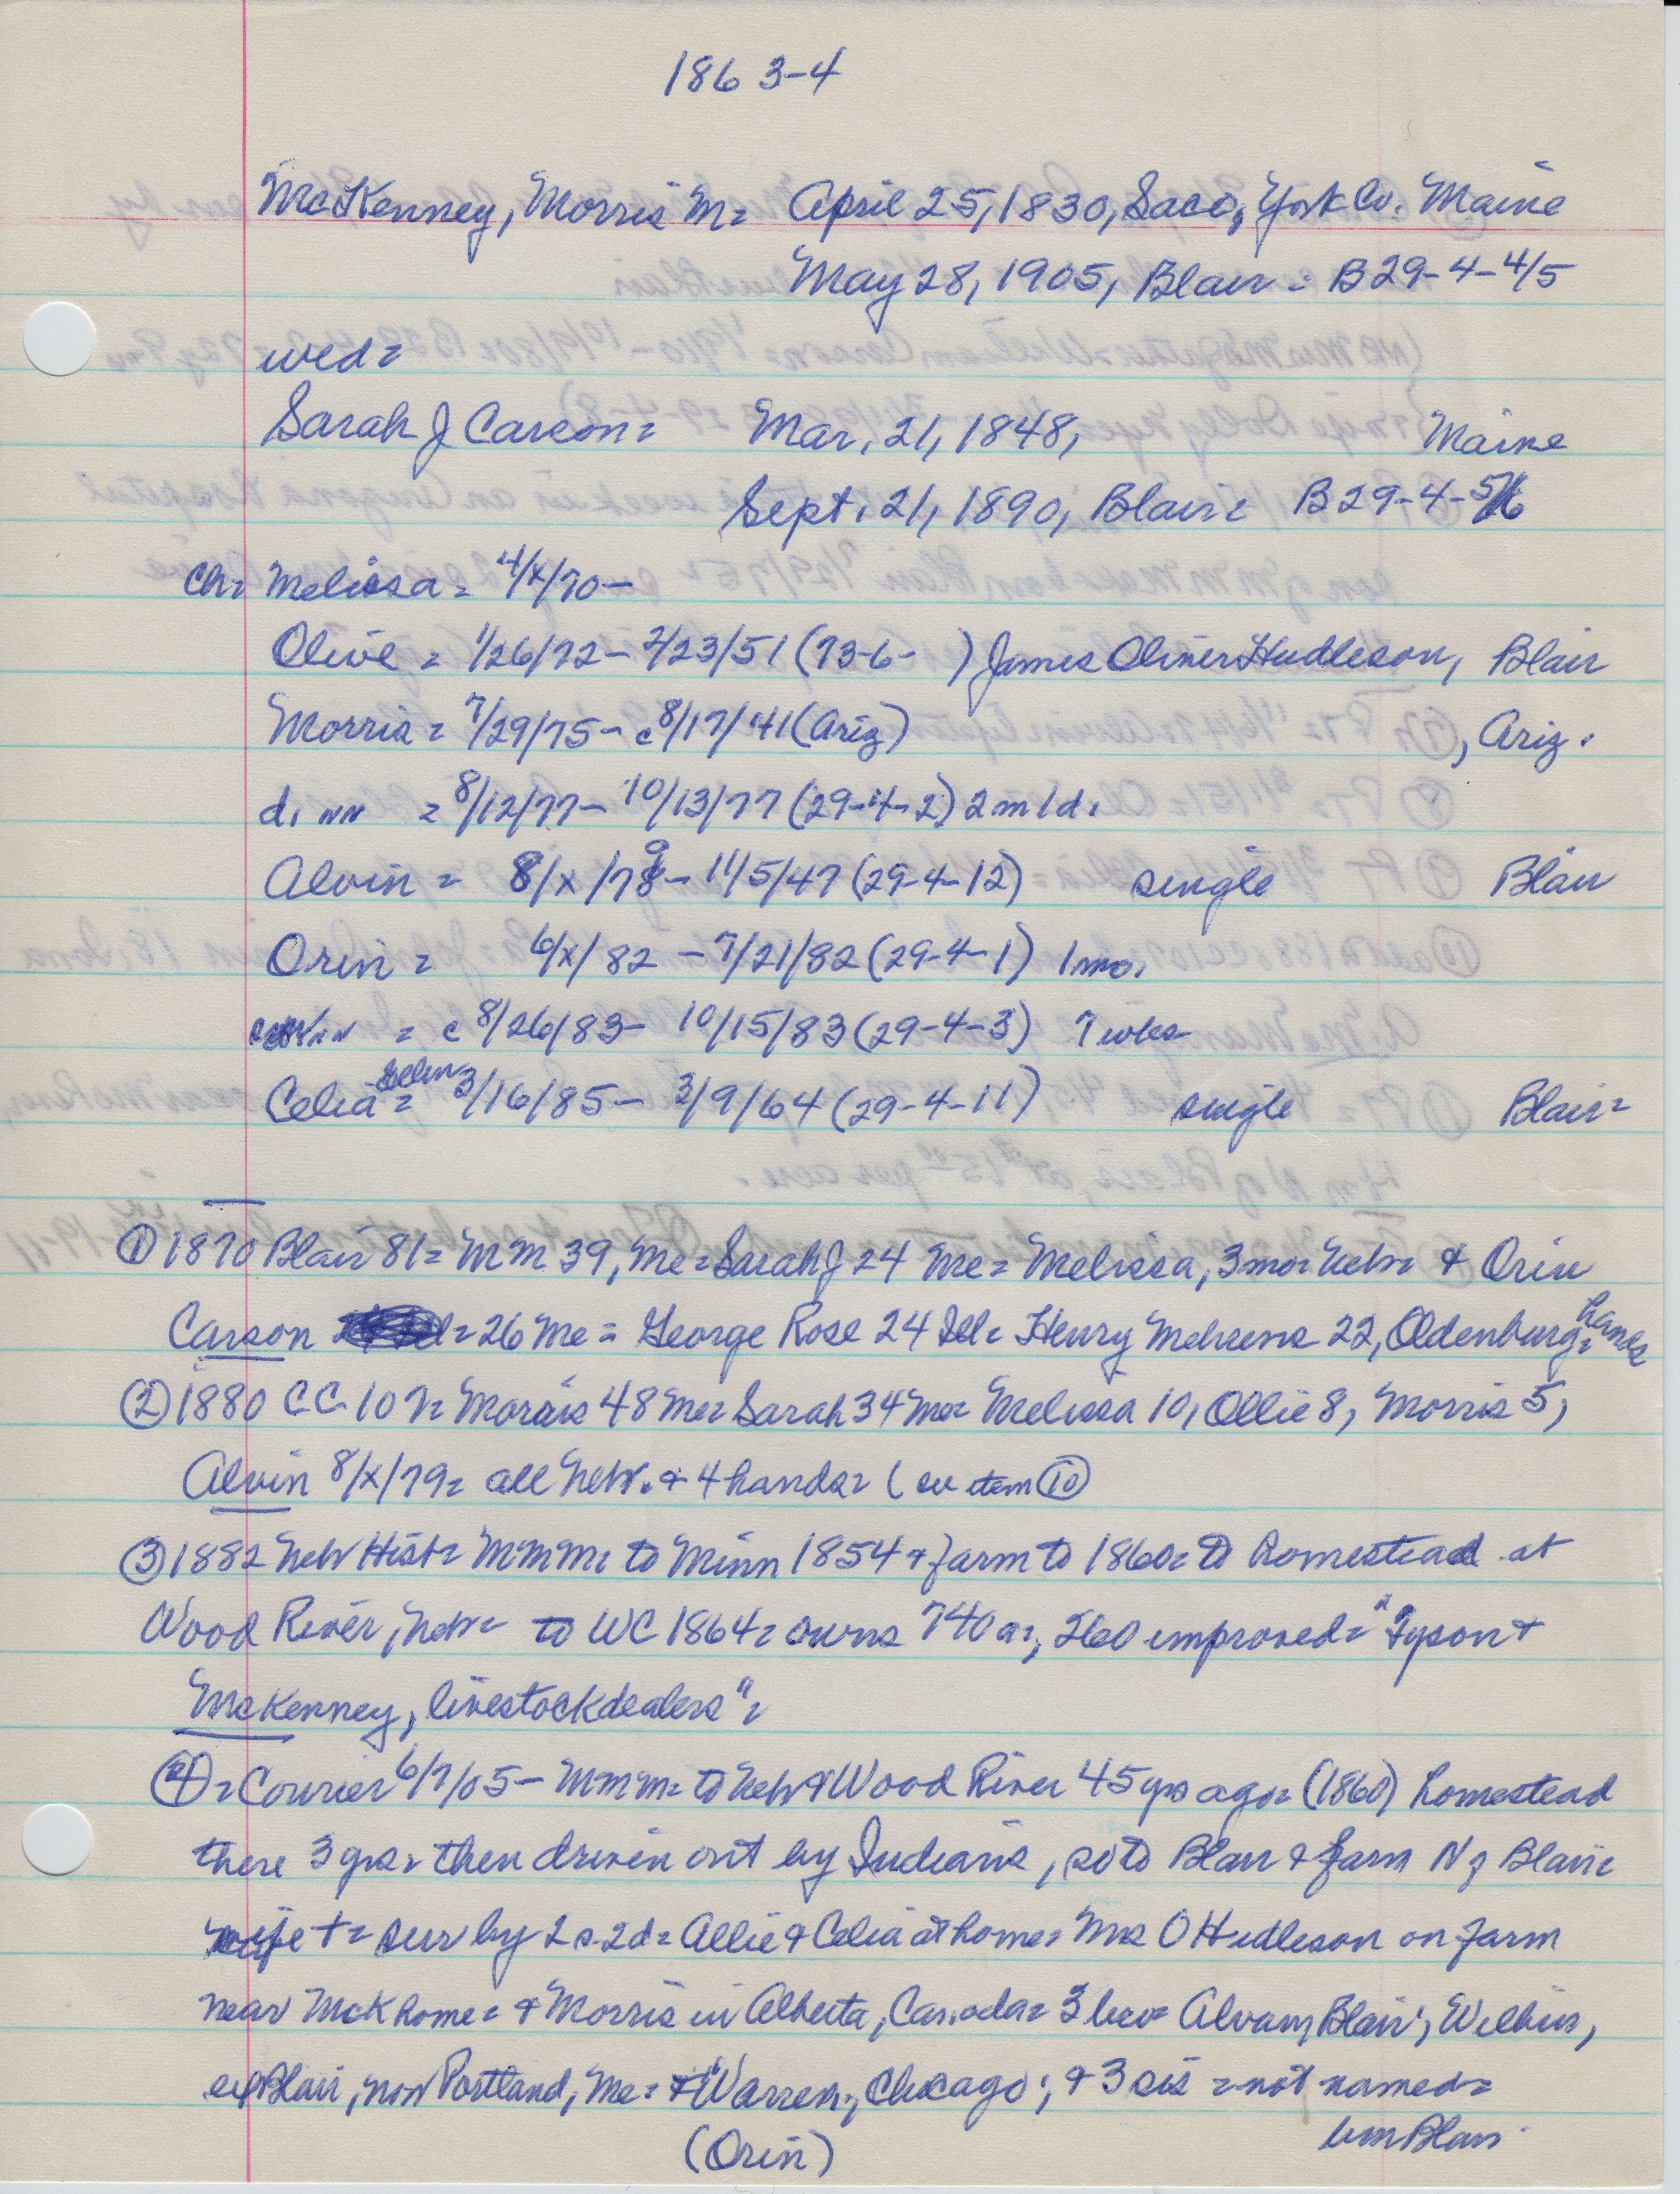 1863-4
McKenney, Morris M= April 25, 1830, Saco, York Co. Maine
May 28, 1905, Blair = B29-4-4/5
wed=
Sarah J Carson= Mar, 21, 1848, Maine
Sept. 21, 1890, Blair= B29-4-5/6
Ch= Melissa = 4/x/70-
Olive = 1/26/72- 2/23/51 (73-6- ) James Oliver Hudleson, Blair
Morris = 7/29/75- c8/17/41 (Ariz) , Ariz.
d. NN = 8/12/77- 10/13/77 (29-4-2) 2m 1d.
Alvin = 8/x/79- 11/5/47 (29-4-12) single Blair
Orin = 6/x/82 - 7/21/82 (29-4-1) 1mo.
NN = c 8/26/83- 10/15/83 (29-4-3) 7 wks
Celia Ellen= 3/16/85- 3/9/64 (29-4-11) single Blair=
① 1870 Blair 81= MM 39, Me= Sarah J 24 Me= Melissa, 3mo= Neb= & Orin
Carson = 26 Me = George Rose 24 Ill= Henry Mehrens 22, Oldenburg= hands
② 1880 CC 102= Morris 48 Me= Sarah 34 Me= Melissa 10, Ollie 8, Morris 5,
Alvin 8/x/79= all Neb. & 4 hands= (see item ⑩
③ 1882 Neb Hist= MMM= to Minn 1854 & farm to 1860= to homestead at
Wood River, Neb= to WC 1864= owns 740 a=, 260 improved= "Tyson &
McKenney, livestock dealers"=
④ = Courier 6/7/05- MMM= to Neb & Wood River 45 yrs ago= (1860) homestead
there 3 yrs= then driven out by Indians, so to Blair & farm N of Blair=
wife †= sur by 2s 2d= Allie & Celia at home= Mrs O Hudleson on farm
near McK home= & Morris in Alberta, Canada= 3 bro= Alvan, Blair; Wilbur,
ex Blair, now Portland, Me= & Warren, Chicago; & 3 sis = not named=
(Orin) bm Blair